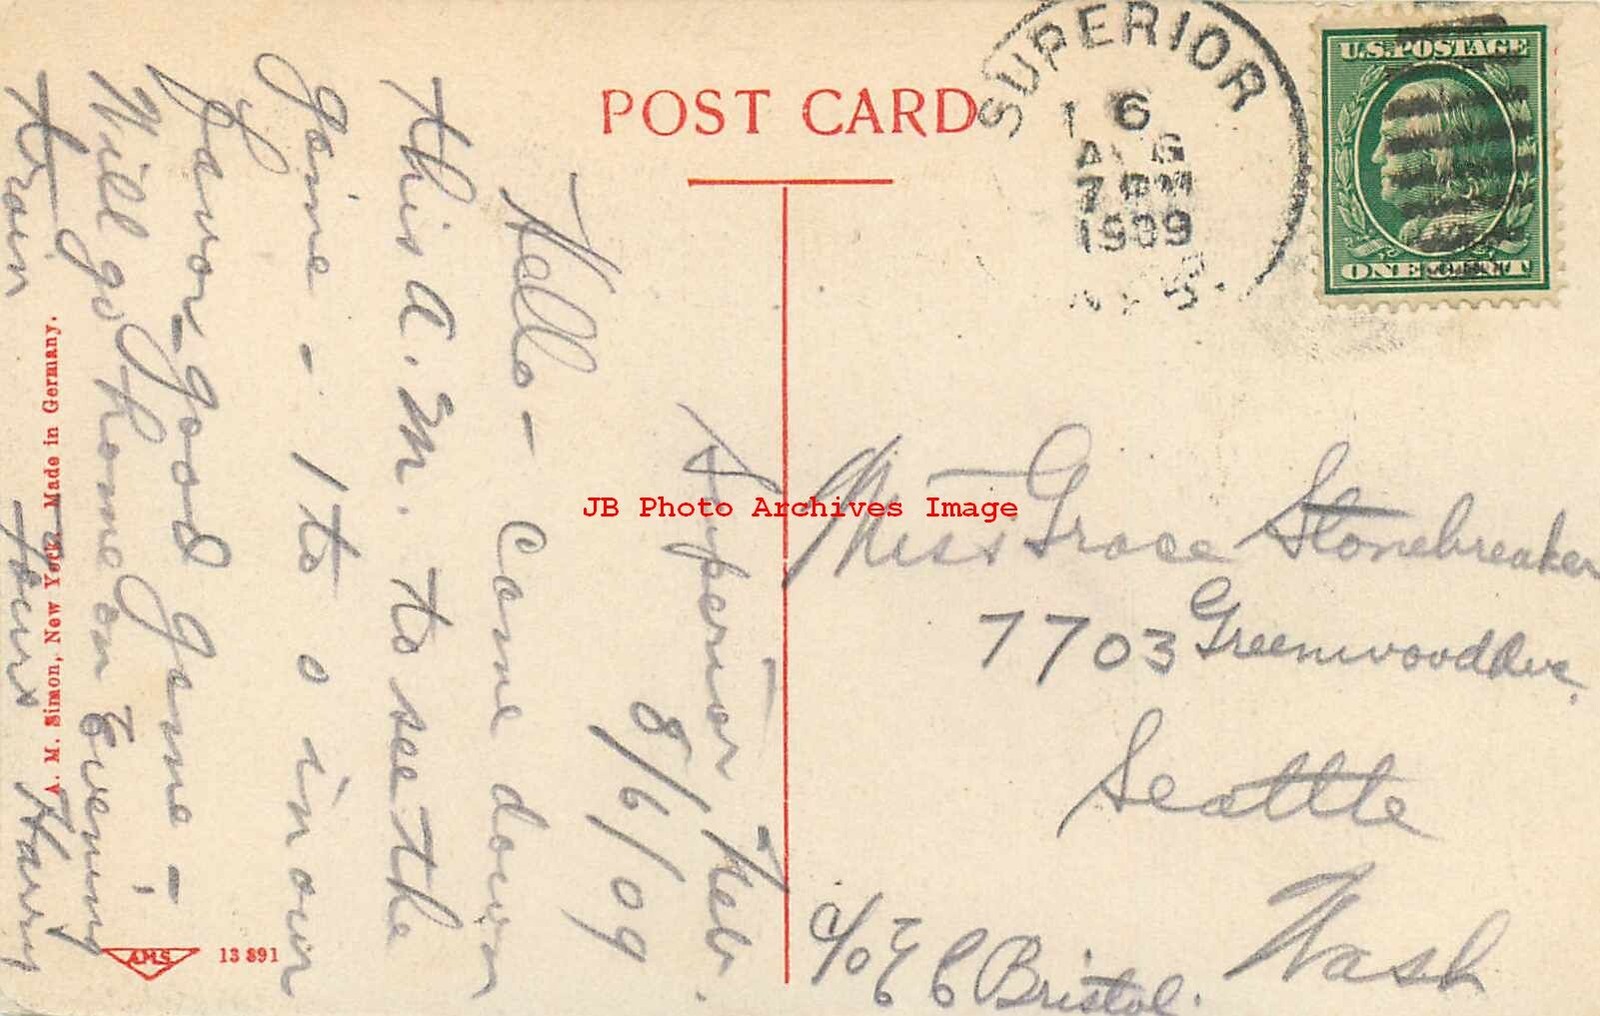 POST CARD
SUPERIOR
6
AUG
7 PM
1909
NEB.
U.S. POSTAGE
ONE CENT
Superior Nebr.
8/6/09
Hello - Came down
this A.M. to see the
game - 1 to 0 in our
favor - good game -
Will go home on Evening
train
Yours Harry
A. M. Simon, New York. Made in Germany.
AMS
13 891
JB Photo Archives Image
Miss Grace Stonebreaker
7703 Greenwood Ave.
Seattle
Wash
c/o E C Bristol.